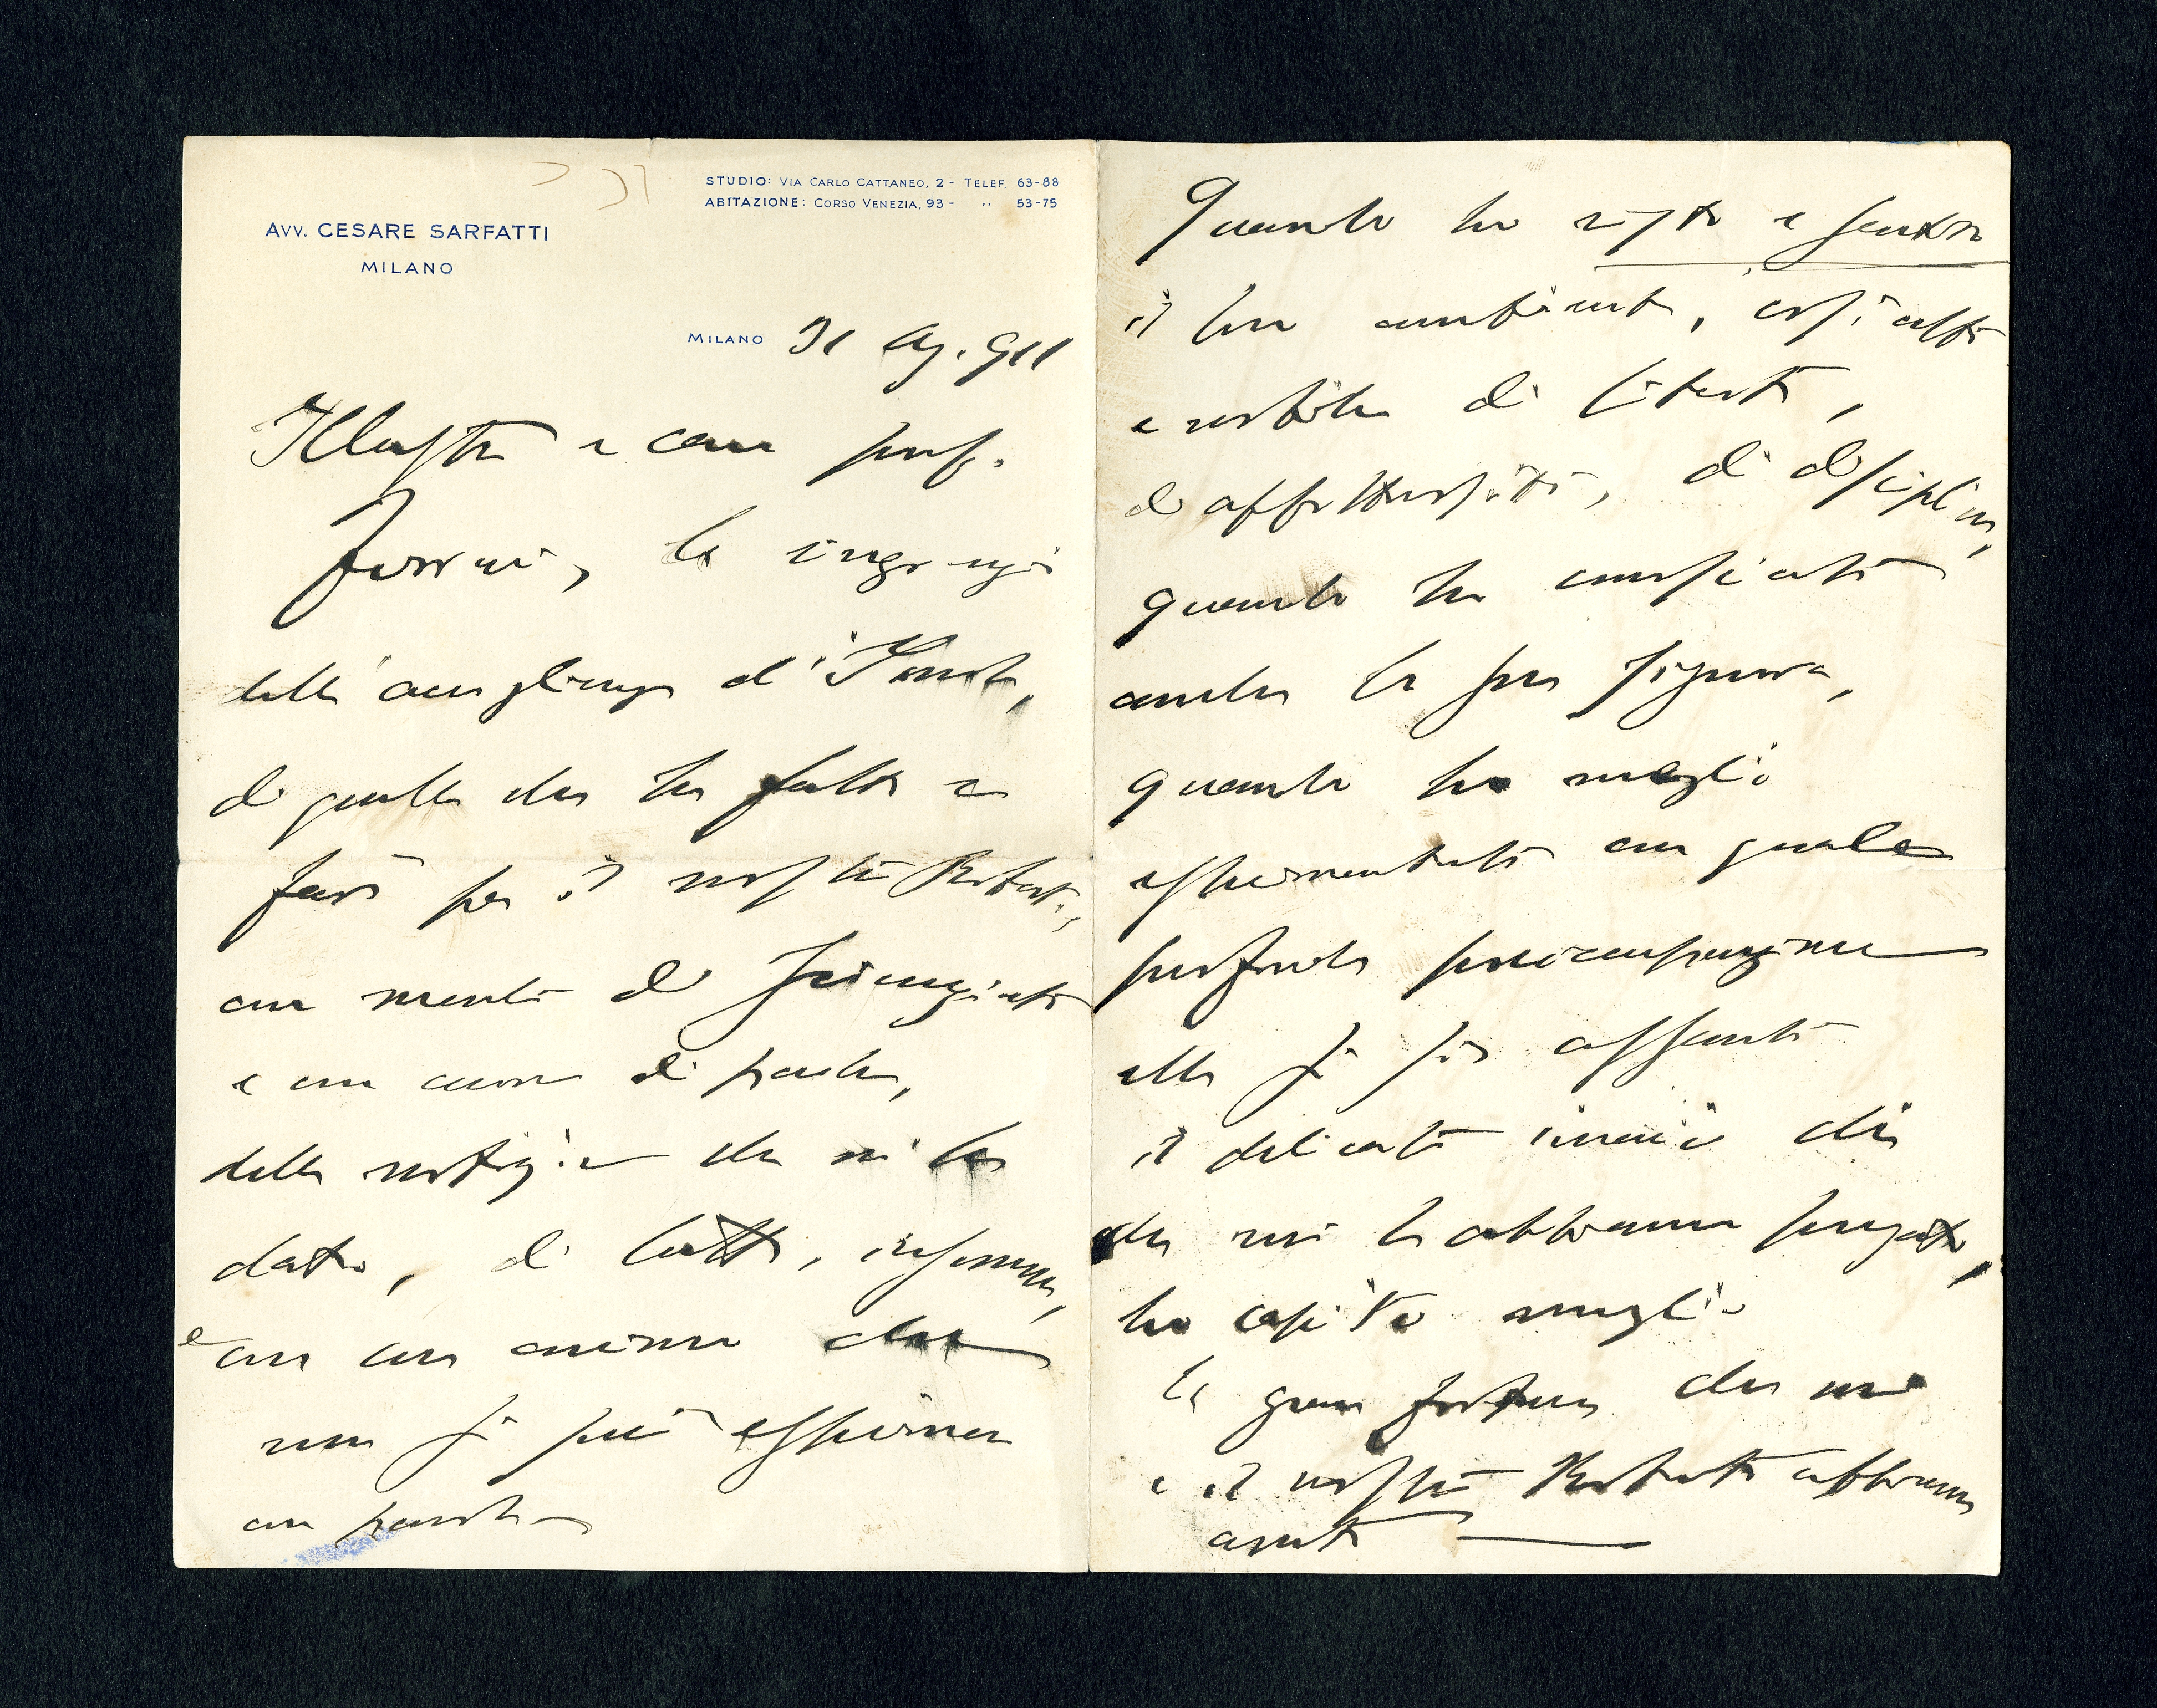 STUDIO: VIA CARLO CATTANEO, 2 - TELEF. 63-88
ABITAZIONE: CORSO VENEZIA, 93 - " 53-75
AVV. CESARE SARFATTI
MILANO
MILANO 31 Ag. 911
Illustre e caro prof.
Ferrari, la ringrazio
dell'accoglienza d'
di quello che ha fatto e
farà per il nostro Roberto,
con mente di scienziato
e con cuore di padre,
delle notizie che mi ha
dato, di tutto, insomma,
e con un animo che
non si può esprimere
con parole
Quando ho visto e sentito
il suo ambiente, così alto
e nobile di libertà,
di affettuosità, di disciplina,
quando ho conosciuto
anche la sua signora,
quando ho meglio
esperimentato con quale
profonda preoccupazione
ella si sia assunto
il delicato incarico di
che noi l'abbiamo pregato,
ho capito meglio
la gran fortuna che noi
e il nostro Roberto abbiamo
avuto